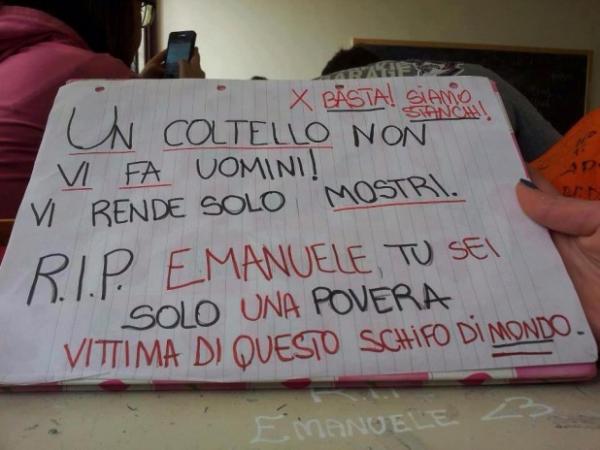 X BASTA! SIAMO
STANCHI!
UN COLTELLO NON
VI FA UOMINI!
VI RENDE SOLO MOSTRI.
R.I.P. EMANUELE, TU SEI
SOLO UNA POVERA
VITTIMA DI QUESTO SCHIFO DI MONDO.
R.I.P.
EMANUELE <3